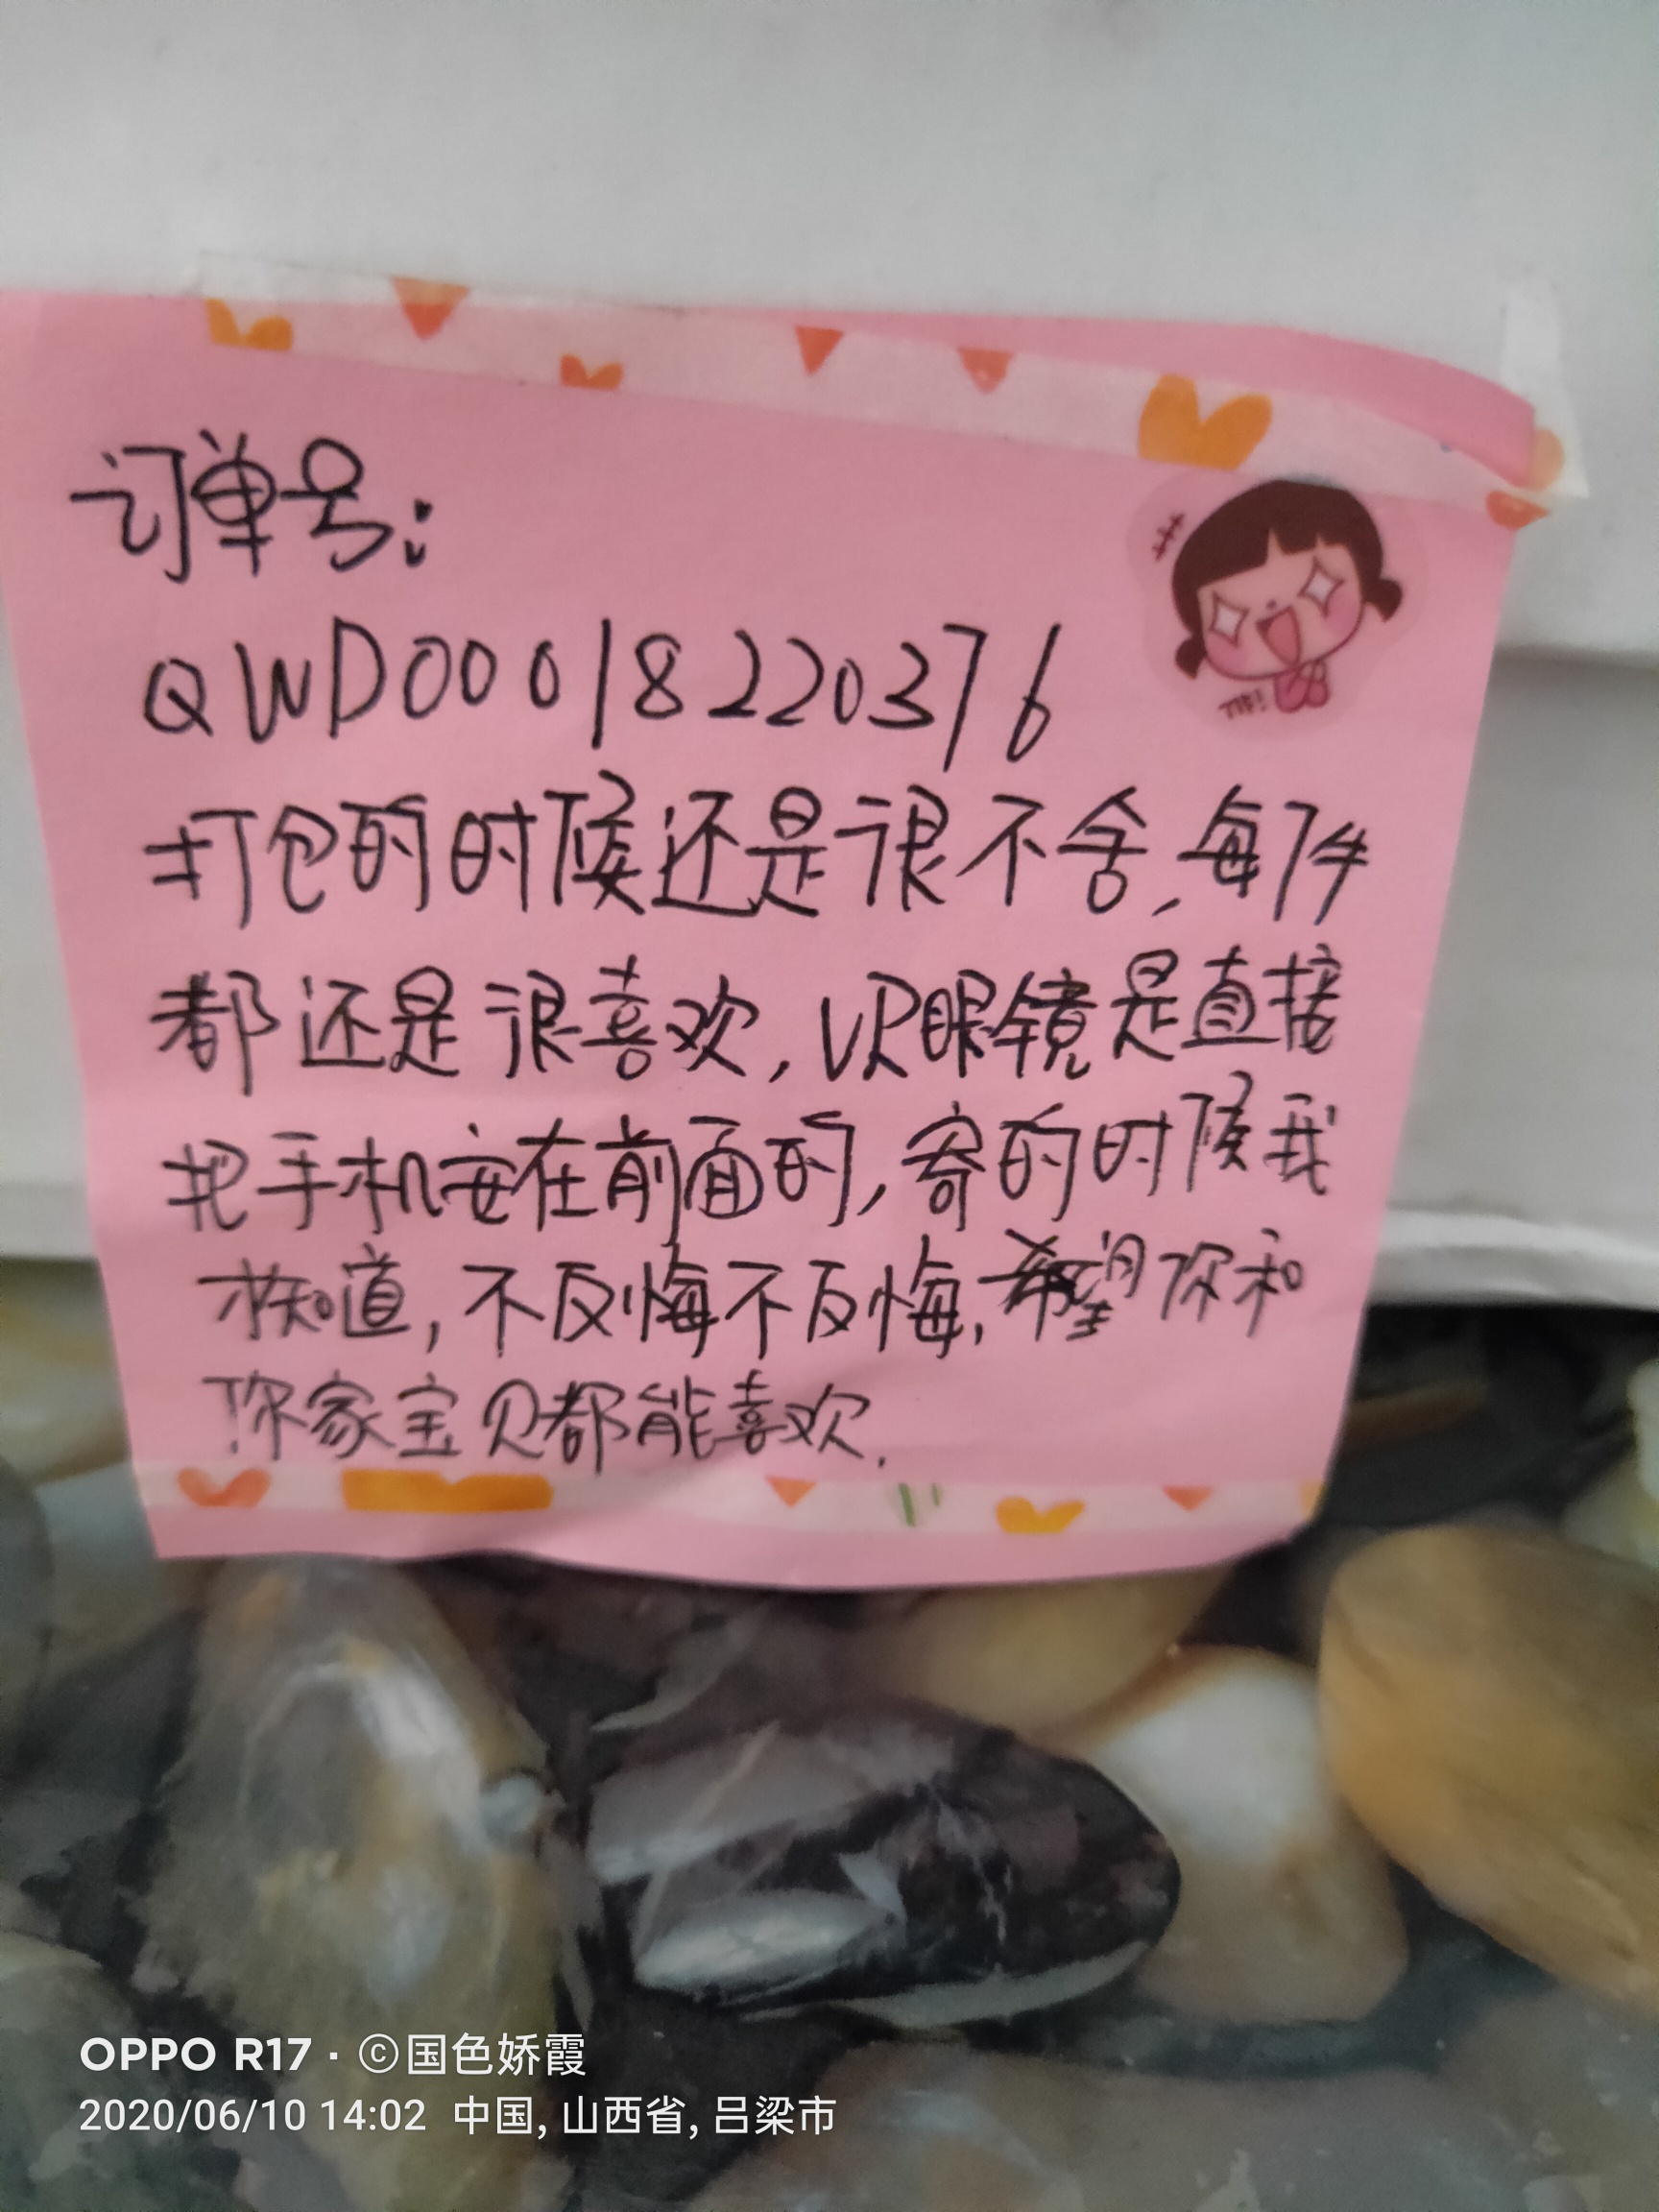 订单号:
QWD00018220376
打包的时候还是很不舍,每个件
都还是很喜欢,VR眼镜是直接
把手机安在前面的,寄的时候我
才知道,不反悔不反悔,希望你和
你家宝贝都能喜欢.
OPPO R17 · ©国色娇霞
2020/06/10 14:02 中国, 山西省, 吕梁市